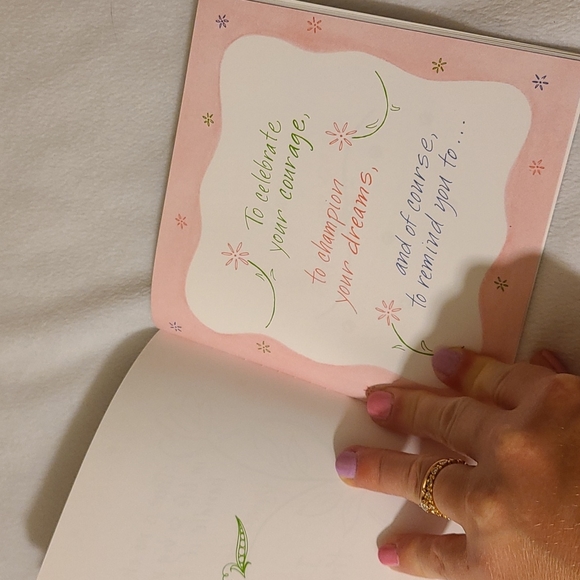 To celebrate
your courage,
to champion
your dreams,
and of course,
to remind you to...